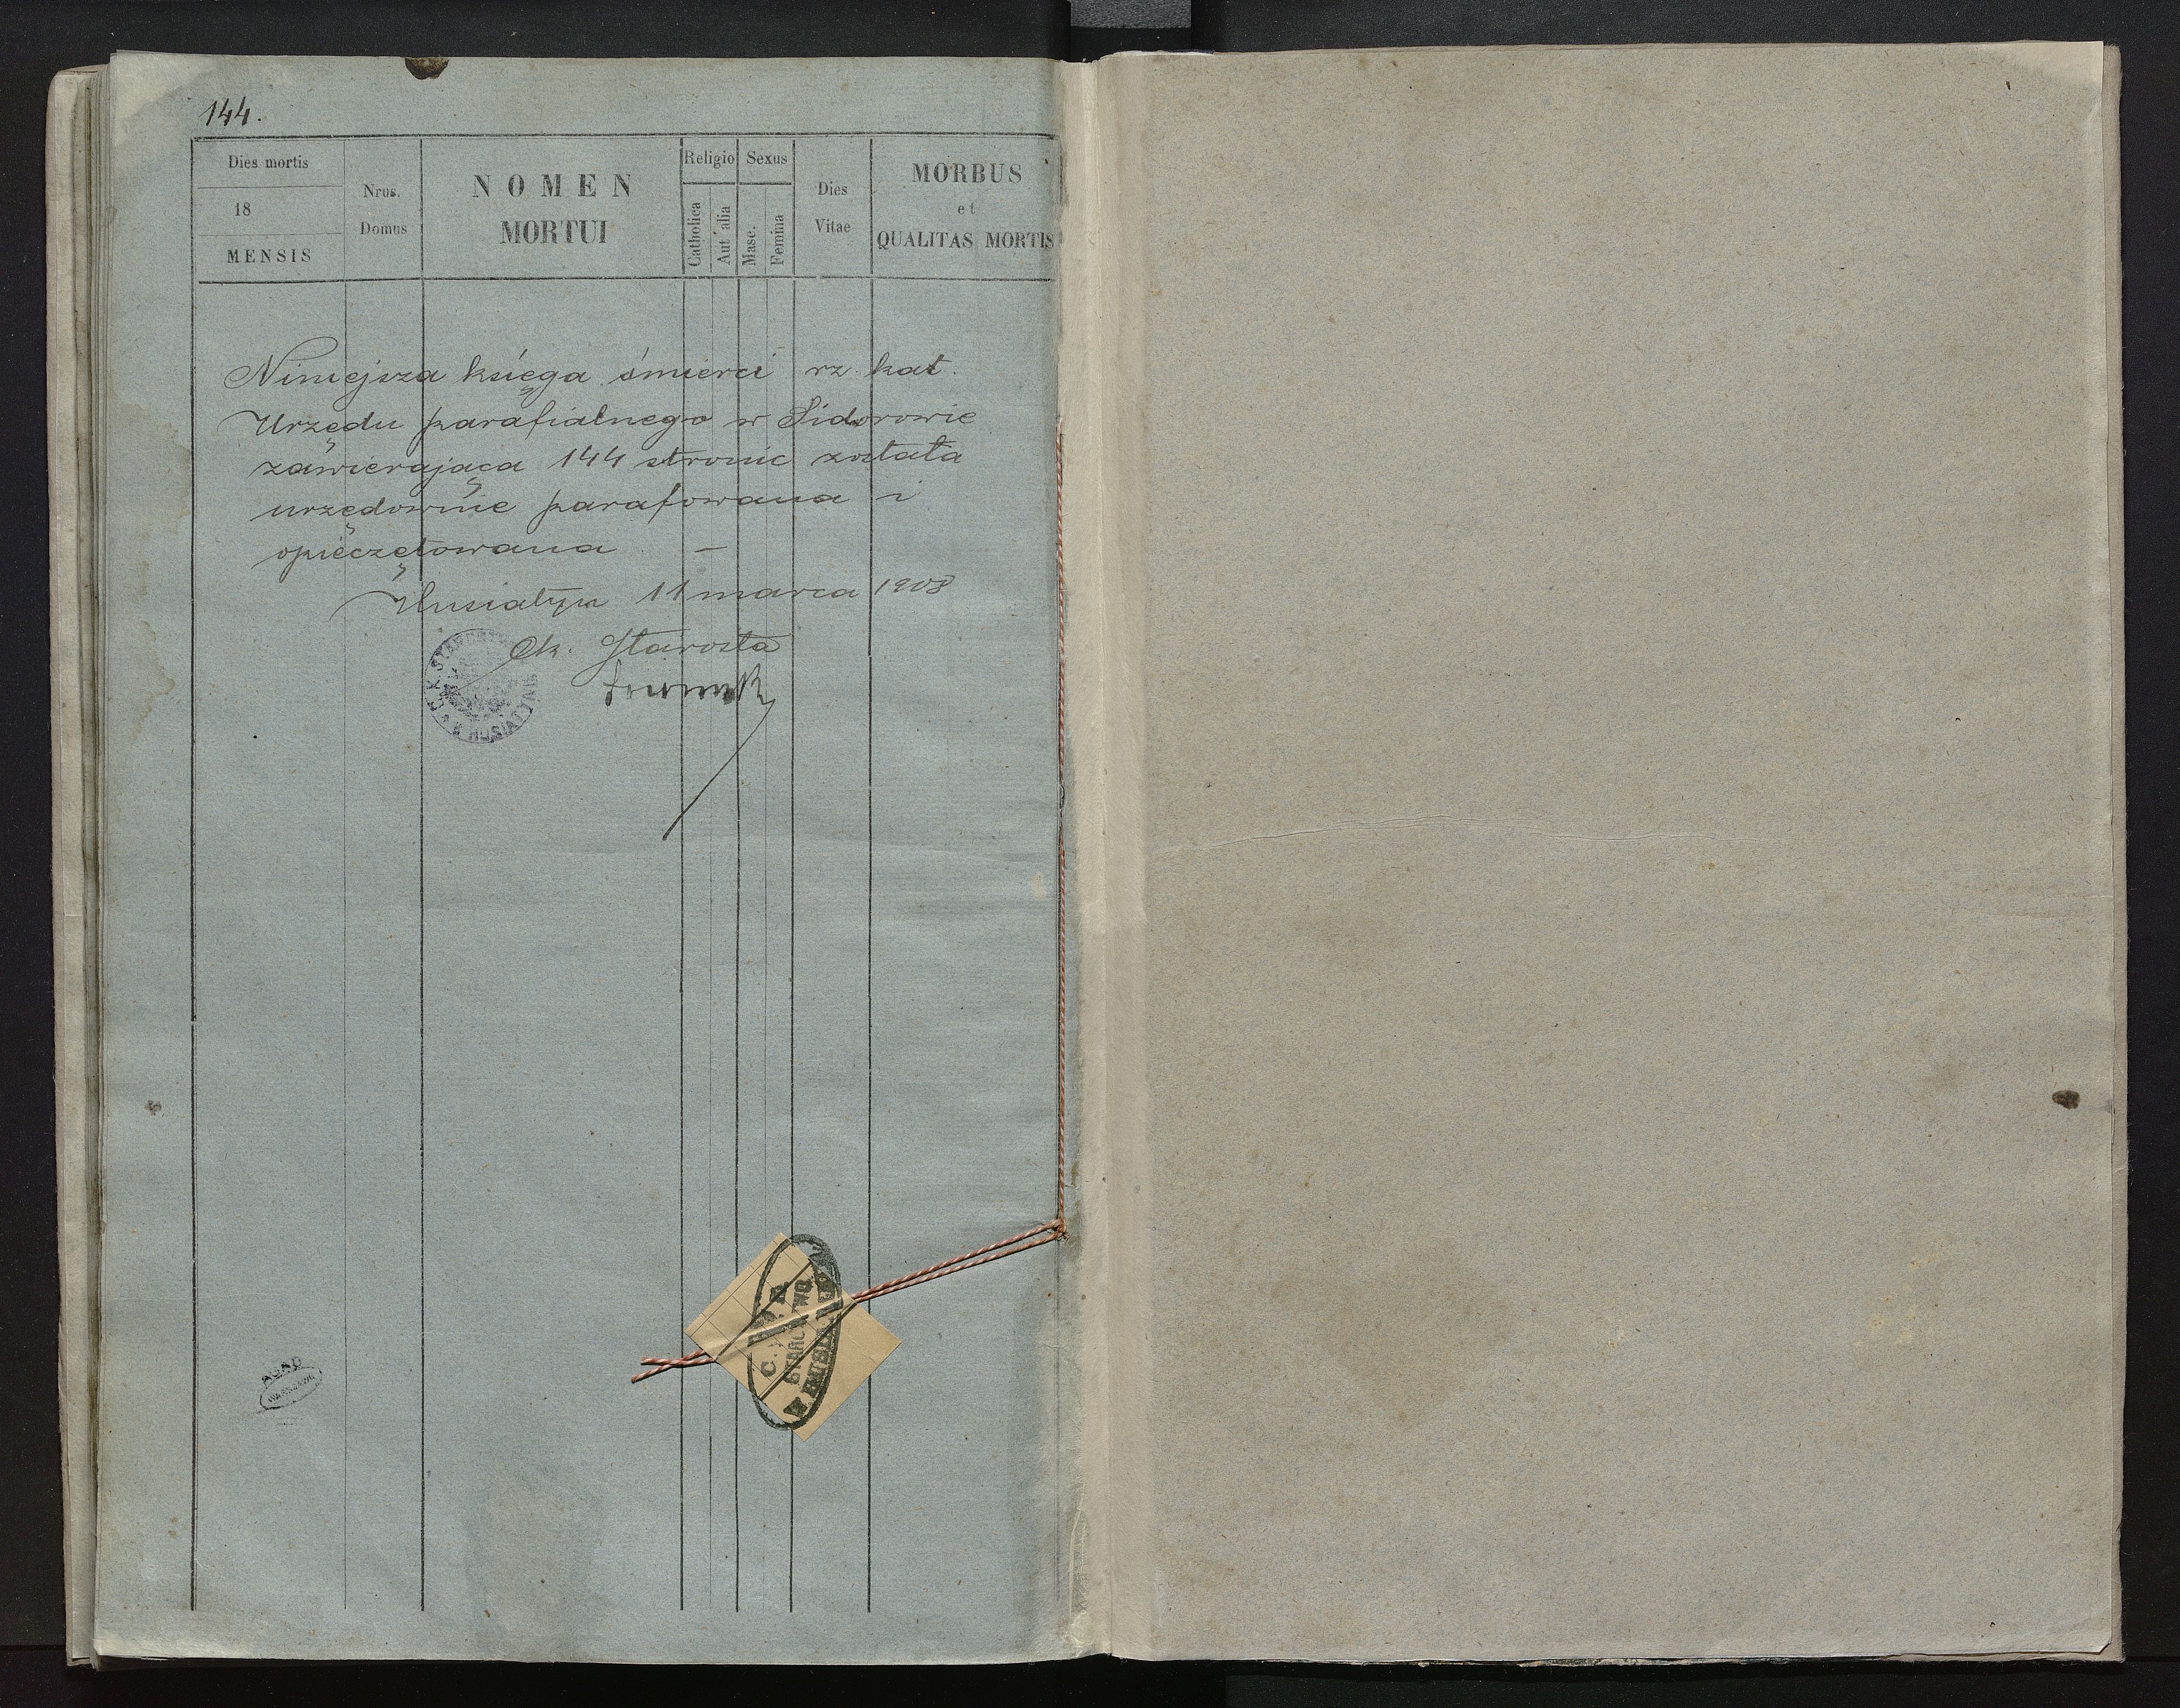 144.
Dies mortis
18
MENSIS
Nrus.
Domus
NOMEN
MORTUI
Religio
Catholica
Aut alia
Sexus
Masc.
Femina
Dies
Vitae
MORBUS
et
QUALITAS MORTIS
Niniejsza księga śmierci rz. kat.
Urzędu parafialnego w Sidorowie
zawierająca 144 stronic została
urzędownie parafowana i
opieczętowana —
Husiatyn 11 marca 1908
Ck. Starosta
C. K. STAROSTWO HUSIATYNIE
C. K.
STAROSTWO
AGAD
WARSZAWA